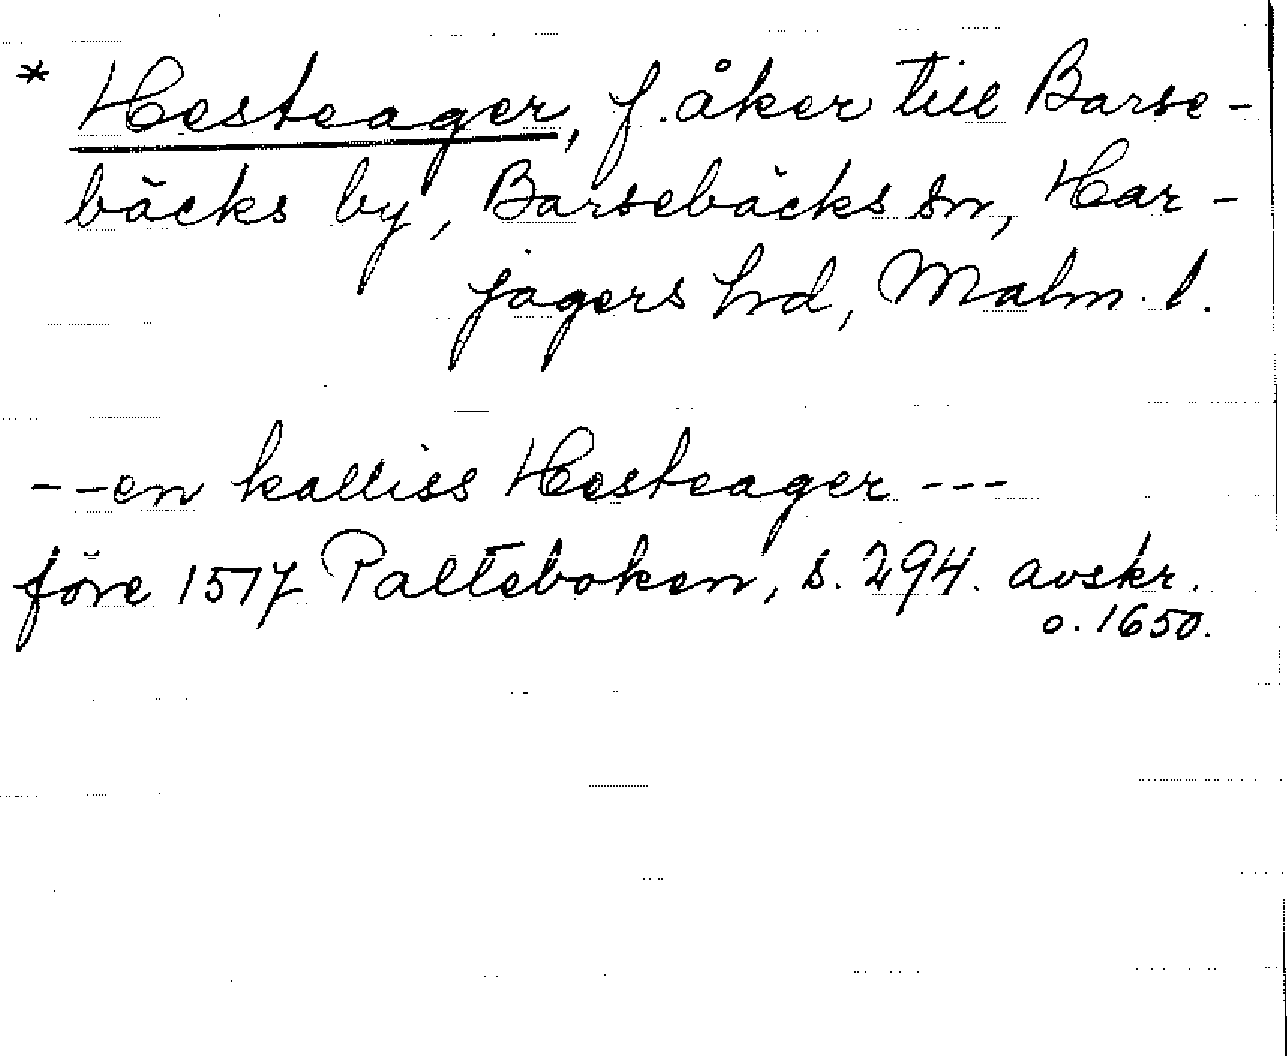 * Hesteager, f. åker till Barse-
bäcks by, Barsebäcks sn, Har-
jagers hd, Malm. l.
--en kalliss Hesteager ---
före 1517 Palteboken, s. 294. avskr.
o. 1650.